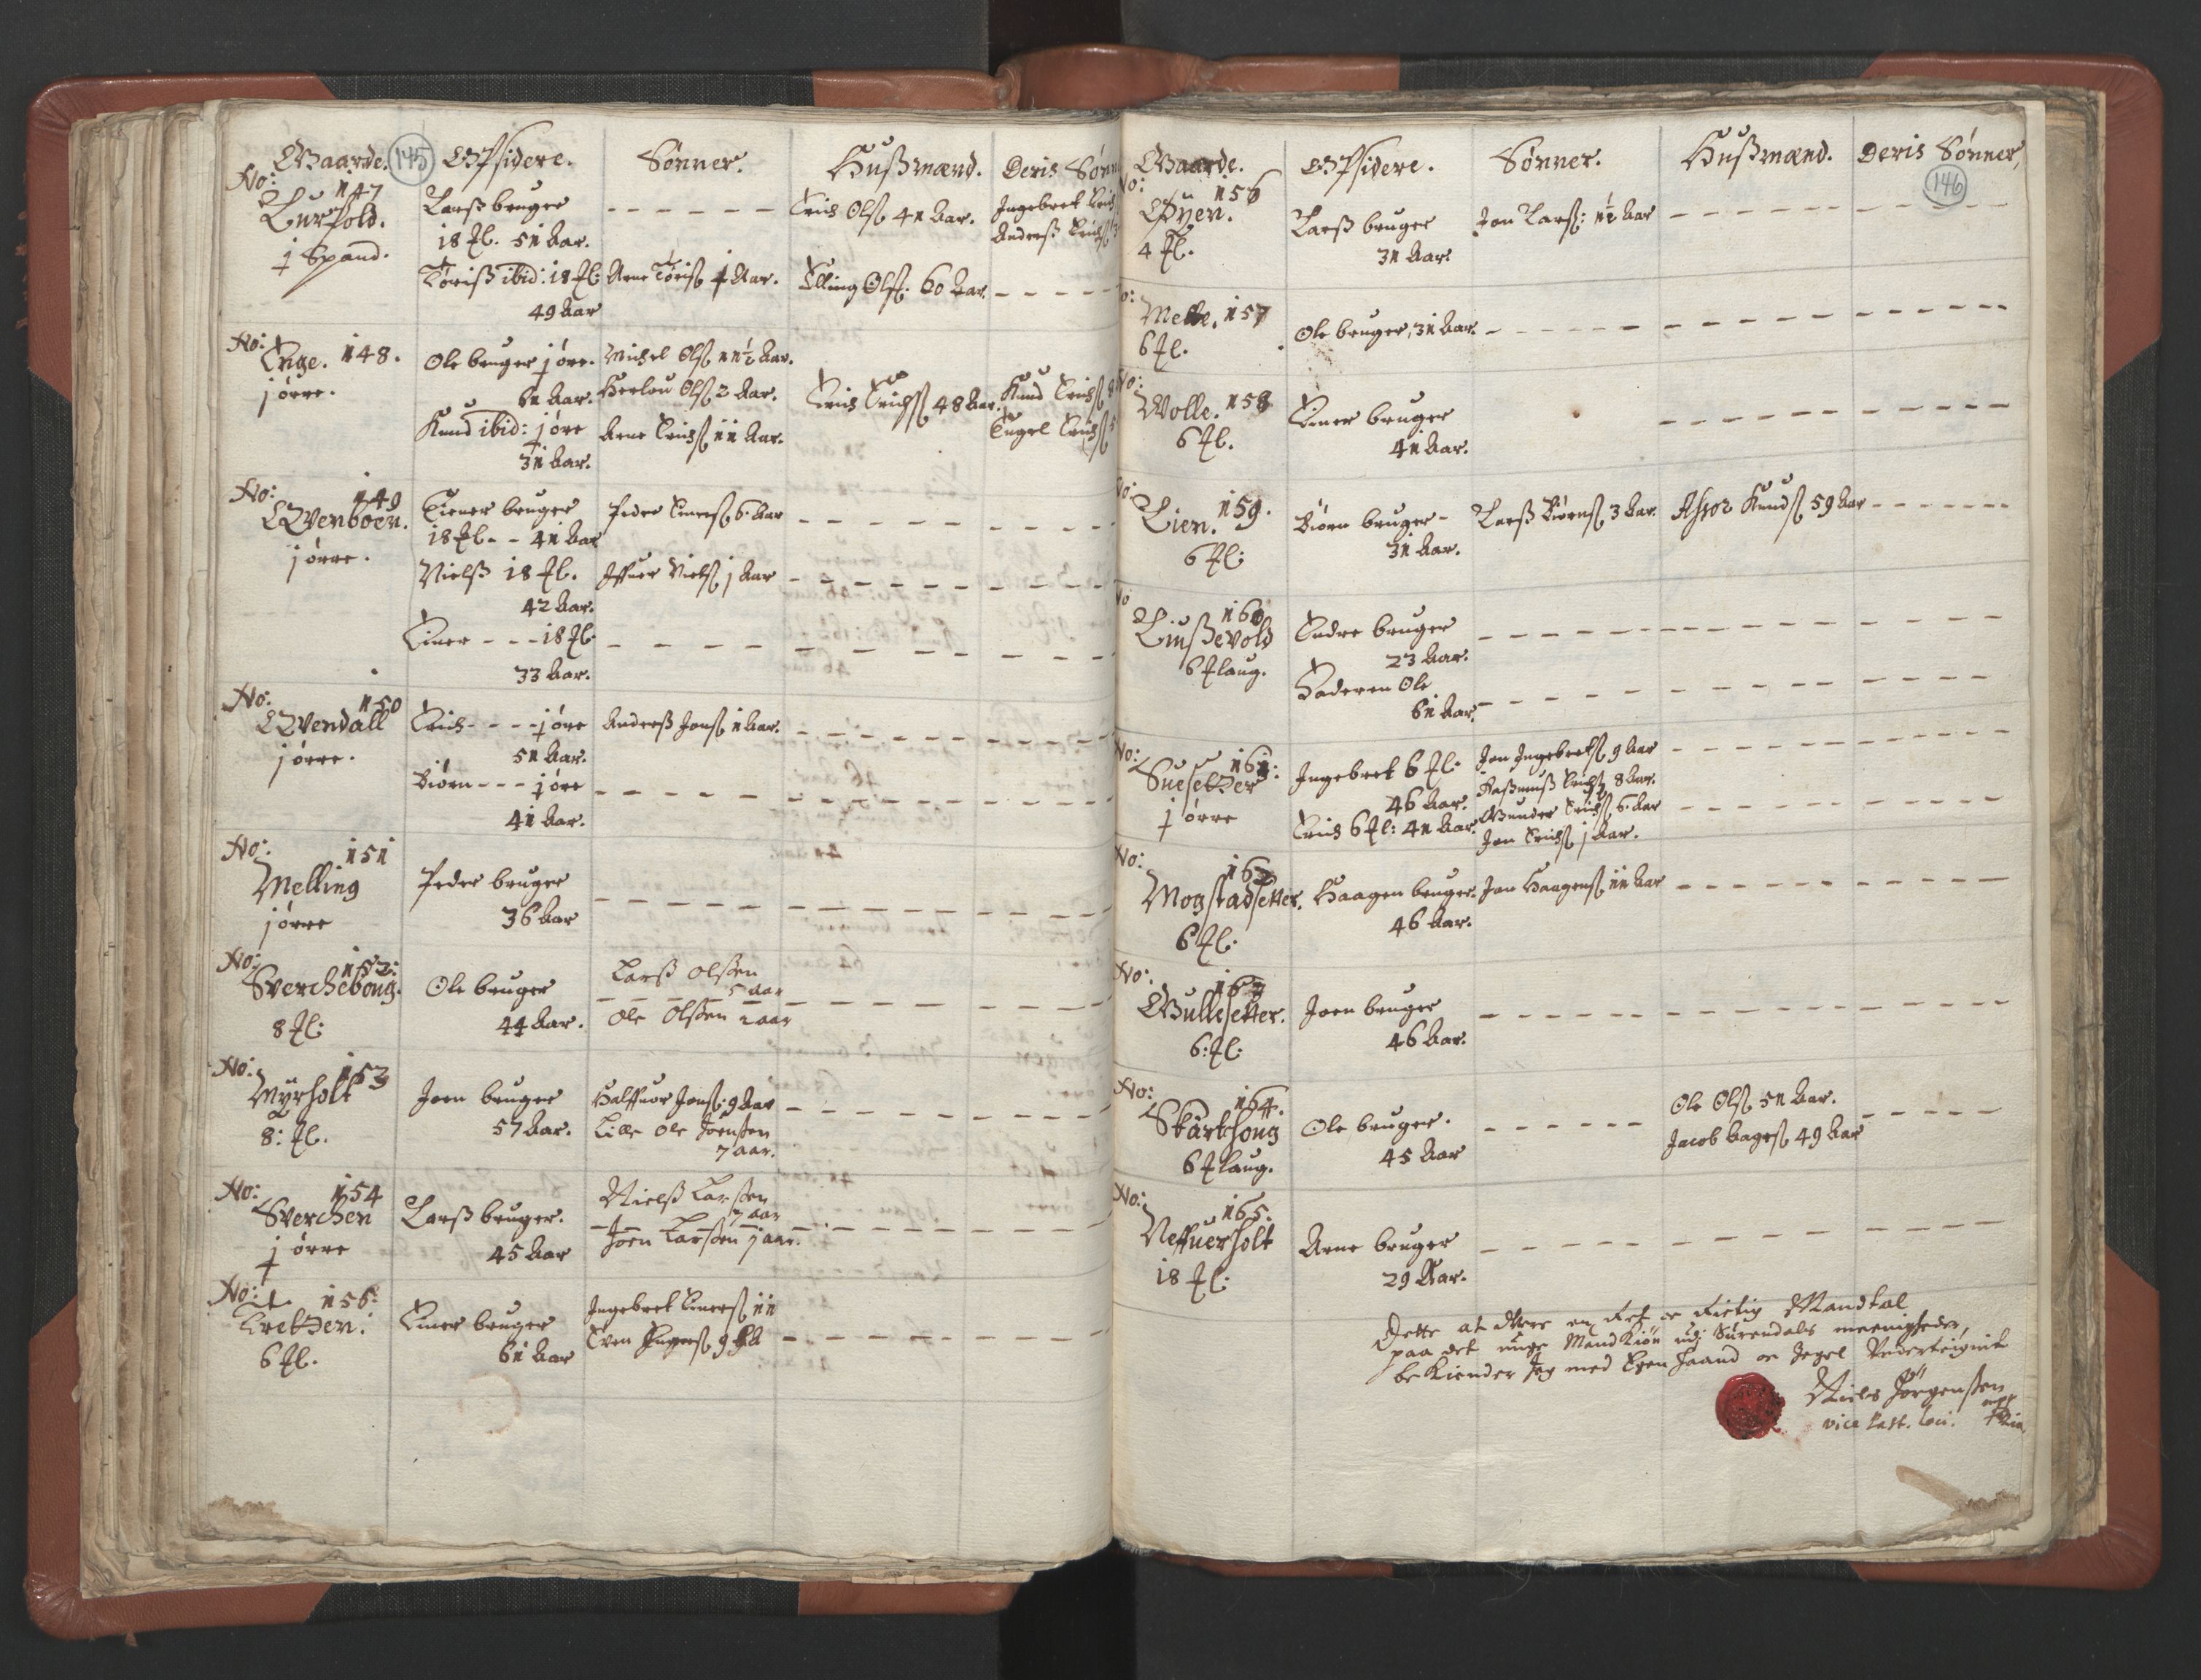 Gaarde. 145 Opsidere. Sønner. Hußmænd. Deris Sønn
No: 147
Lurfold.
j Spand.
Larß bruger
18 ℔. 51 Aar.
Erich Olß 41 Aar.
Ingebret Erich
Anderß Erichß
Toriß ibid: 18 ℔:
49 Aar
Arne Torisß 4 Aar.
Elling Olß: 60 Aar.
No: 148.
Enge.
j ørre.
Ole bruger j øre.
61 Aar.
Michel Olß 11½ Aar.
Herlou Olß 2 Aar.
Erich Erichß 48 Aar.
Knud Erichß 8
Engel Erichß 5
Knud ibid: j øre
31 Aar.
Arne Erichß 11 Aar.
No: 149
Qvenboen.
j ørre.
Einer bruger
18 ℔ - - 41 Aar
Peder Einerß 6 Aar
Nielß 18 ℔.
42 Aar.
Iffuer Nielß j Aar
Einer - - - 18 ℔:
33 Aar.
No: 150
Qvendall
j ørre.
Erich - - - - j øre
51 Aar.
Anderß Jonß 1 Aar.
Biørn - - - j øre
41 Aar.
No: 151
Melling
j ørre
Peder bruger
36 Aar
No: 152:
Svercheboug.
8 ℔:
Ole bruger
44 Aar.
Larß olßen
5 aar
Ole Olßen 2 aar
No: 153
Myrholt
8: ℔.
Joen bruger
57 Aar.
Halffuor Jonß: 9 Aar
Lille Ole Joenßen
7 aar.
No: 154
Sverchen
j ørre
Larß bruger.
45 Aar
Nielß Larßen
7 aar
Joen Larßen j aar.
No: 155:
Kretzen.
6 ℔.
Einer bruger
61 Aar
Ingebret Einerß 11
Even 9
Gaarde. Opsidere. Sønner. Hußmænd. Deris Sønner,
146
No: 156
Øyen.
4 ℔.
Larß bruger
31 Aar.
Jon Larß: 1½ Aar
No: 157
Melle.
6 ℔.
Ole bruger, 31 Aar.
No: 158
Wolle.
6 ℔.
Einer bruger
41 Aar.
No: 159.
Lien.
6 ℔:
Biørn bruger -
31 Aar.
Larß Biørnß 3 Aar.
Knudß 59 Aar
No 160
Linßevold
6 ℔ laug.
Endre bruger
23 Aar.
Faderen Ole
61 Aar.
No: 161:
Suesetzer
j ørre
Ingebret 6 ℔:
46 Aar.
Jon Ingebretß 9 Aar
Erich 6 ℔: 41 Aar.
Raßmuß Erichß 8 Aar.
Gunder Erichß 6 Aar
Jon Erichß j Aar.
No: 162
Mogstadsetter.
6 ℔:
Haagen bruger.
46 Aar.
Jon Haagenß 11 Aar
No: 163
Gullesetter.
6: ℔:
Joen bruger
46 Aar.
No: 164.
Skartsoug
6 ℔ laug.
Ole bruger.
45 Aar
Ole Olß 51 Aar.
Jacob Aagesß 49 Aar
No: 165.
Neffuerholt
18 ℔:
Arne bruger
29 Aar.
Dette at were en Ret oc Rictig Mandtal
paa det unge Mand Kiøn udj Surendals meenigheder,
be Kiender Jeg med Egen Haand oc Segel Vnderteignit
Niels Jörgenßen
vice Past. loci. mpp ria